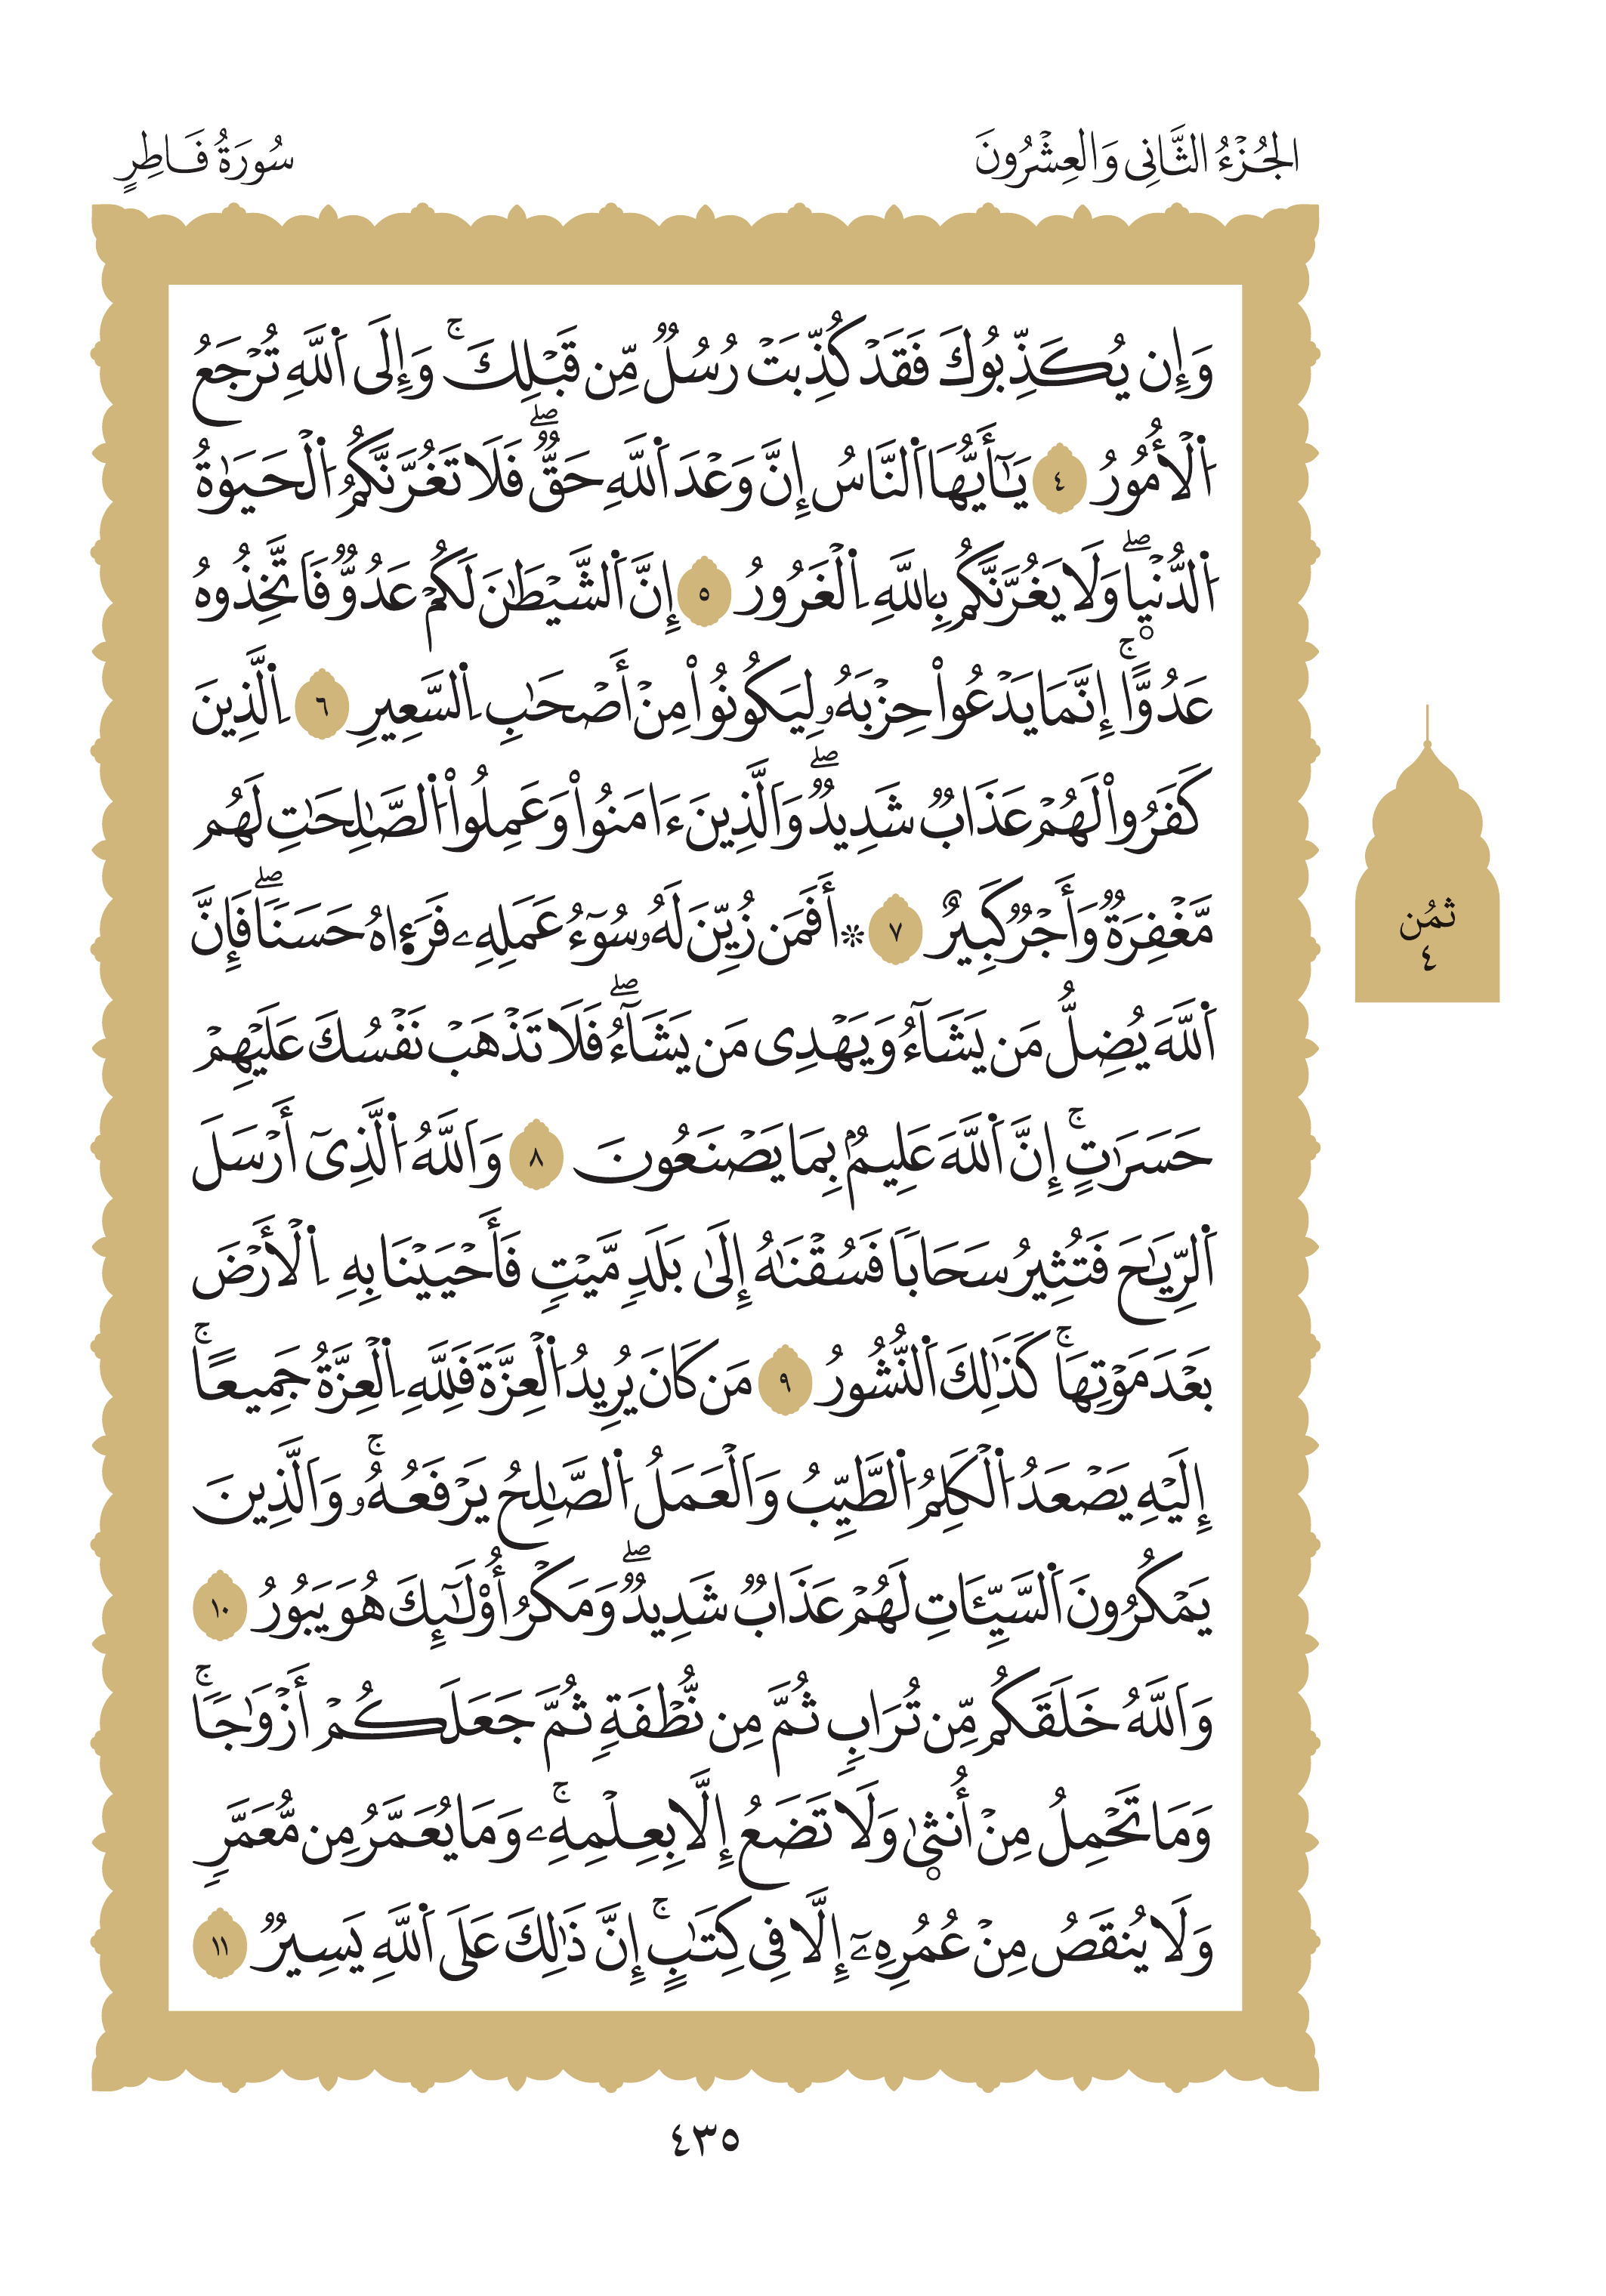 الجُزْءُ الثَّانِي وَالعِشْرُونَ
سُورَةُ فَاطِرٍ
وَإِن يُكَذِّبُوكَ فَقَدْ كُذِّبَتْ رُسُلٌ مِّن قَبْلِكَۚ وَإِلَى اَ۬للَّهِ تُرْجَعُ
اُ۬لْأُمُورُ ٤ يَٰٓأَيُّهَا اَ۬لنَّاسُ إِنَّ وَعْدَ اَ۬للَّهِ حَقٌّۖ فَلَا تَغُرَّنَّكُمُ اُ۬لْحَيَوٰةُ
اُ۬لدُّنْي۪اۖ وَلَا يَغُرَّنَّكُم بِاللَّهِ اِ۬لْغَرُورُ ٥ إِنَّ اَ۬لشَّيْطَٰنَ لَكُمْ عَدُوٌّ فَاتَّخِذُوهُ
عَدُوًّاۚ إِنَّمَا يَدْعُواْ حِزْبَهُۥ لِيَكُونُواْ مِنْ أَصْحَٰبِ اِ۬لسَّعِيرِ ٦ اِ۬لَّذِينَ
كَفَرُواْ لَهُمْ عَذَابٌ شَدِيدٌۖ وَالَّذِينَ ءَامَنُواْ وَعَمِلُواْ اُ۬لصَّٰلِحَٰتِ لَهُم
مَّغْفِرَةٌ وَأَجْرٌ كَبِيرٌ ٧ ۞ أَفَمَن زُيِّنَ لَهُۥ سُوٓءُ عَمَلِهِۦ فَرَء۪اهُ حَسَنًاۖ فَإِنَّ
اَ۬للَّهَ يُضِلُّ مَن يَشَآءُ وَيَهْدِي مَن يَشَآءُۖ فَلَا تَذْهَبْ نَفْسُكَ عَلَيْهِمْ
حَسَرَٰتٍۚ إِنَّ اَ۬للَّهَ عَلِيمٌ بِمَا يَصْنَعُونَ ٨ وَاللَّهُ اُ۬لَّذِيٓ أَرْسَلَ
اَ۬لرِّيَٰحَ فَتُثِيرُ سَحَابًا فَسُقْنَٰهُ إِلَىٰ بَلَدٍ مَّيْتٍ فَأَحْيَيْنَا بِهِ اِ۬لْأَرْضَ
بَعْدَ مَوْتِهَاۚ كَذَٰلِكَ اَ۬لنُّشُورُ ٩ مَن كَانَ يُرِيدُ اُ۬لْعِزَّةَ فَلِلَّهِ اِ۬لْعِزَّةُ جَمِيعًاۚ
إِلَيْهِ يَصْعَدُ اُ۬لْكَلِمُ اُ۬لطَّيِّبُ وَالْعَمَلُ اُ۬لصَّٰلِحُ يَرْفَعُهُۥۚ وَالَّذِينَ
يَمْكُرُونَ اَ۬لسَّيِّـَٔاتِ لَهُمْ عَذَابٌ شَدِيدٌۖ وَمَكْرُ أُوْلَٰٓئِكَ هُوَ يَبُورُ ١٠
وَاللَّهُ خَلَقَكُم مِّن تُرَابٍ ثُمَّ مِن نُّطْفَةٍ ثُمَّ جَعَلَكُمْ أَزْوَٰجًاۚ
وَمَا تَحْمِلُ مِنْ أُنث۪ىٰ وَلَا تَضَعُ إِلَّا بِعِلْمِهِۦۚ وَمَا يُعَمَّرُ مِن مُّعَمَّرٍ
وَلَا يُنقَصُ مِنْ عُمُرِهِۦٓ إِلَّا فِي كِتَٰبٍۚ إِنَّ ذَٰلِكَ عَلَى اَ۬للَّهِ يَسِيرٌ ١١
ثُمُن
٤
٤٣٥